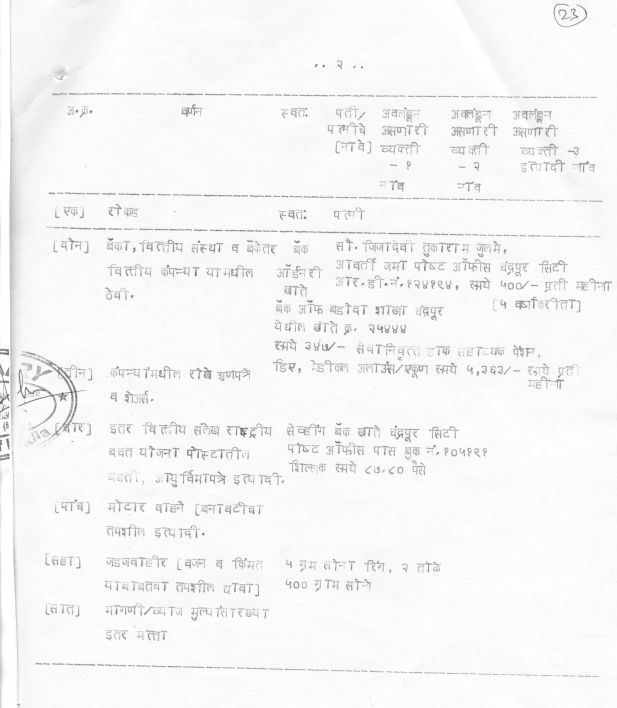 23
.. २ ..
अ.क्र. वर्णन स्वत: पती/ अवलंबून अवलंबून अवलंबून
पत्नीचे असणारी असणारी असणारी
[नावे] व्यक्ती व्यक्ती व्यक्ती -३
- १ - २ इत्यादी नांव
नांव नांव
[एक] रोकड स्वत: पत्नी
[दोन] बँका, वित्तीय संस्था व बँकेतर बँक सौ. जिजादेवी तुकाराम जुलमे,
वित्तीय कंपन्या यामधील ऑर्डनरी आवर्ती जमा पोष्ट ऑफीस चंद्रपूर सिटी
ठेवी. खाते आर.डी.नं.१२४१९४, रूपये ५००/- प्रती महीना
बँक ऑफ बडोदा शाखा चंद्रपूर [५ वर्षाकरीता]
येथील खाते क्र. २५४४४
रूपये ३४७/- सेवानिवृत्त डाक सहाय्यक पेंशन,
[तीन] कंपन्यांमधील रोखे ऋणपत्रे डिए, मेडीकल अलाउंस/एकूण रूपये ५,२६२/- रूपये प्रती
व शेअर्स. महीना
[चार] इतर वित्तीय संलेख राष्ट्रीय सेव्हींग बँक खाते चंद्रपूर सिटी
बचत योजना पोस्टातील पोष्ट ऑफीस पास बुक नं.१०५१९१
बचती, आयुर्विमापत्रे इत्यादी. शिल्लक रूपये ८७.८० पैसे
[पांच] मोटार वाहने [बनावटीचा
तपशील इत्यादी.
[सहा] जडजवाहीर [वजन व किंमत ५ ग्रम सोना रिंग, २ तोळे
याबाबतचा तपशील द्यावा] ५०० ग्राम सोने
[सात] मागणी/व्याज मुल्यांसारख्या
इतर मत्ता